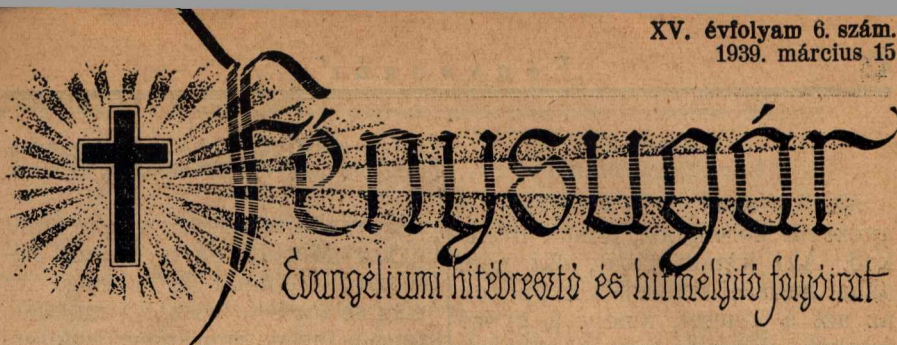 XV. évfolyam 6. szám.
1939. március 15
Fénysugár
Evangéliumi hitébresztő és hitmélyitő folyóirat